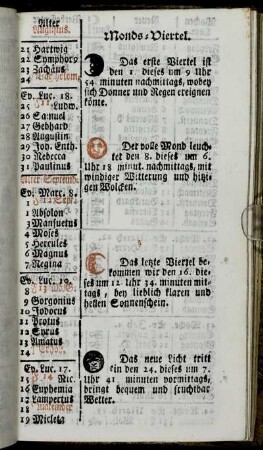 Alter
Augustus.
21 Hartwig
22 Symphor9
23 Zachäus
24
Ev. Luc. 18.
25 Ludw.
26 Samuel
27 Gebhard
28 Augustin
29 Joh. Enth.
30 Rebecca
31 Paulinus
Alter Septemb.
Ev. Marc. 8.
1 Absolon
2 Mansuetus
4 Moses
5 Hercules
6 Magnus
7 Regina
Ev. Luc. 10.
8
9 Gorgonius
10 Jodocus
11 Protus
12 Syrus
13 Amatus
14
Ev. Luc. 17.
15 Nic.
16 Euphemia
17 Lampertus
18
19 Micleta
Monds-Viertel.
Das erste Viertel ist
den 1. dieses um 9 Uhr
54 minuten nachmittags, wobey
sich Donner und Regen ereignen
könte.
Der volle Mond leuch-
tet den 8. dieses um 6.
Uhr 18 minut. nachmittags, mit
windiger Witterung und hitzi-
gen Wolcken.
Das letzte Viertel be-
kommen wir den 16. die-
ses um 12 Uhr 34. minuten mit-
tags, bey lieblich klaren und
hellen Sonnenschein.
Das neue Licht tritt
ein den 24. dieses um 7.
Uhr 41 minuten vormittags,
bringt bequem und fruchtbar
Wetter.